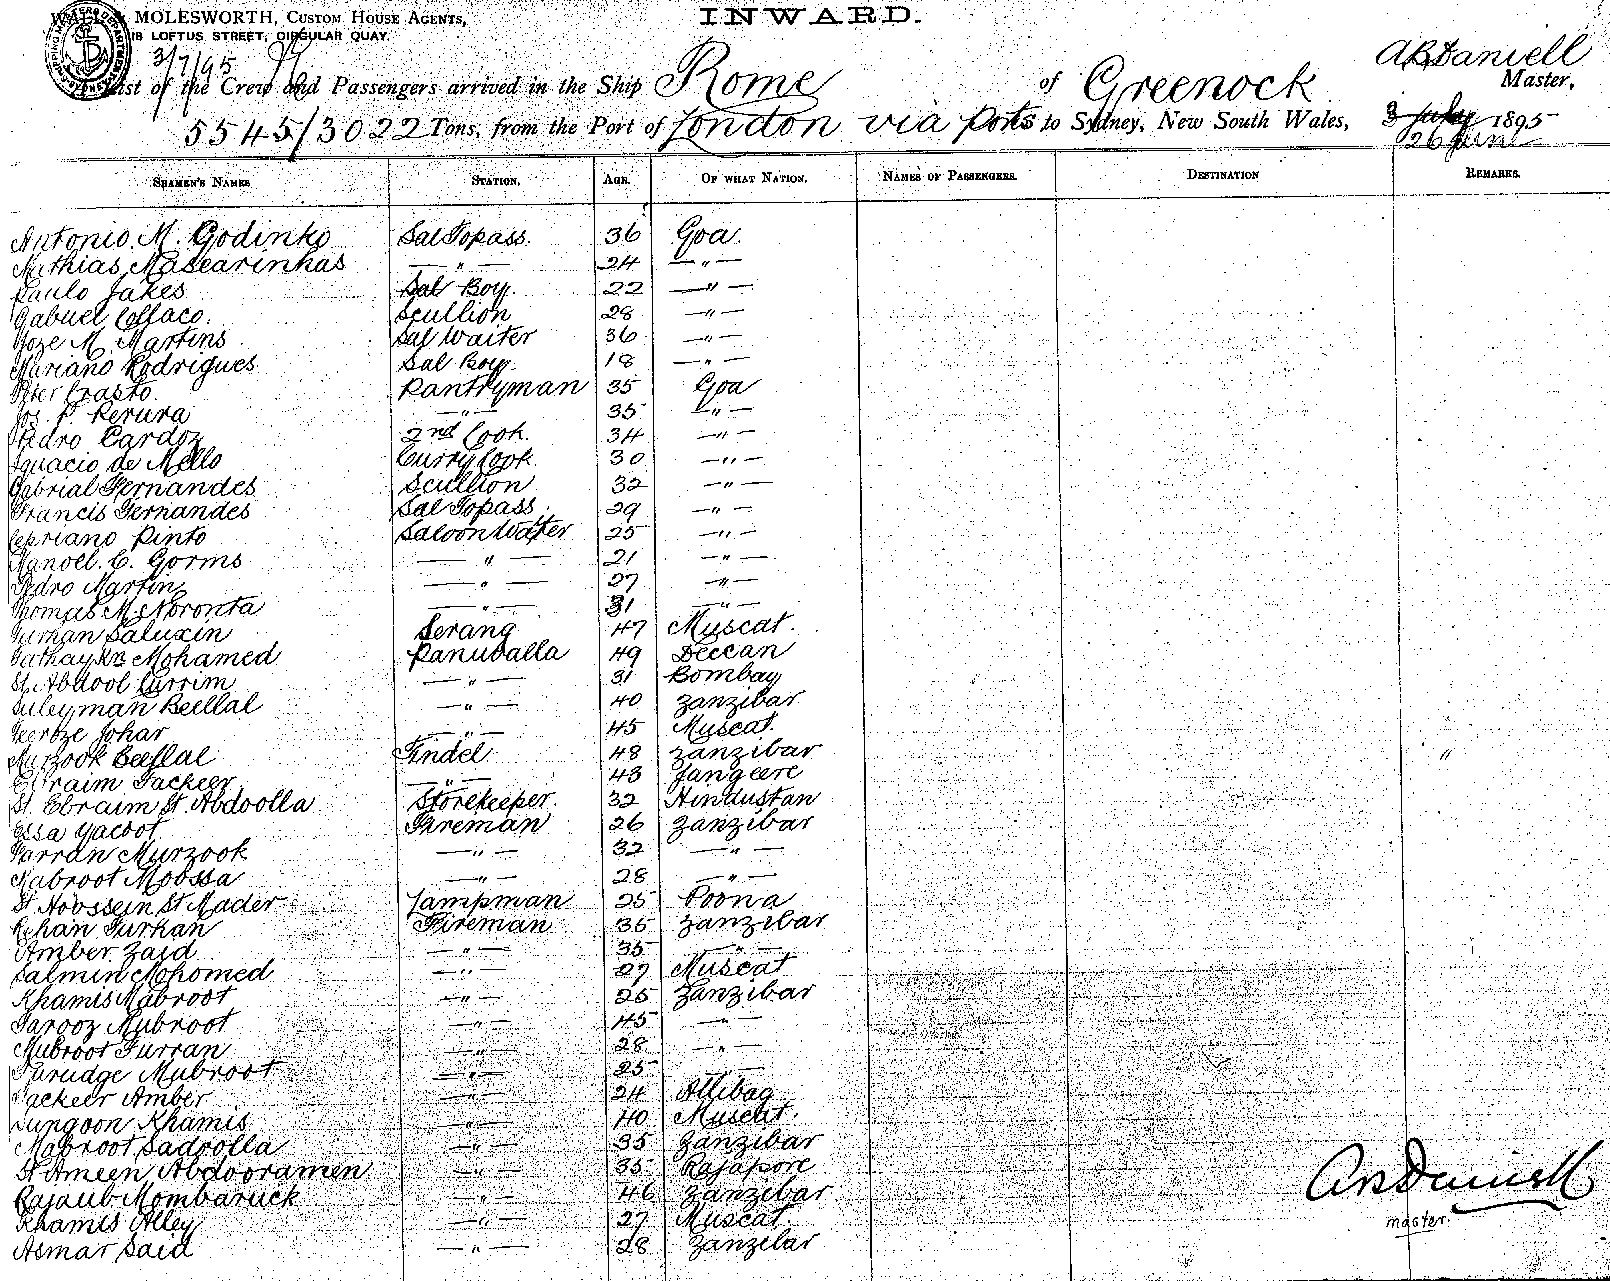 MOLESWORTH, CUSTOM HOUSE AGENTS,
INWARD.
18 LOFTUS STREET, CIRCULAR QUAY.
3/7/95
List of the Crew and Passengers arrived in the Ship Rome of Greenock A B Daniell Master,
5545/3022 Tons, from the Port of London via Ports to Sydney, New South Wales, 3 July 1895
26 June
SEAMEN'S NAMES STATION. AGE. OF WHAT NATION. NAMES OF PASSENGERS. DESTINATION REMARKS.
Antonio. M. Godinho Sal Topass. 36 Goa.
Mathias Mascarinhas — " — 24 — " —
Paulo Jakes Sal Boy. 22 — " —
Gabriel Collaco. Scullion 28 — " —
Joze M Martins Sal Waiter 36 — " —
Mariano Rodrigues Sal Boy. 18 — " —
Peter Crasto. Pantryman 35 Goa
Jos. P. Perura — " — 35 — " —
Pedro Cardoz 2nd Cook. 34 — " —
Ignacio de Mello Curry Cook 30 — " —
Gabrial Fernandes Scullion 32 — " —
Francis Fernandes Sal Topass. 29 — " —
Cepriano Pinto Saloon Waiter 25 — " —
Manoel. C. Gorms — " — 21 — " —
Pedro Martin — " — 27 — " —
Thomas M. Noronta — " — 31 — " —
Saluxin Serang 47 Muscat.
Mohamed Panuvalla 49 Deccan
St. Abdool Currim — " — 31 Bombay
Suleyman Beellal — " — 40 Zanzibar
Feeroze Johar — " — 45 Muscat.
Murzook Beellal Tindel 48 Zanzibar "
Ebraim Tackeer — " — 43 Jangeere
St. Ebraim St. Abdoolla Storekeeper. 32 Hindustan
Essa Yacoot Fireman 26 Zanzibar
Farran Murzook — " — 32 — " —
Mabroot Moossa — " — 28 — " —
St Hoossein St Mader Lampman 25 Poona
Rehan Furhan Fireman 35 Zanzibar
Amber Zaid — " — 35 — " —
Salmin Mohomed — " — 27 Muscat
Khamis Mabroot — " — 25 Zanzibar
Farooz Mubroot — " — 45 — " —
Mubroot Furran — " — 28 — " —
Farudge Mubroot — " — 25 — " —
Tackeer Amber — " — 24 Allibag
Sungoon Khamis — " — 40 Muscat.
Mabroot Sadoolla — " — 35 Zanzibar
St Ameen Abdooramen — " — 35 Rajapore
Rajaub Mombaruck — " — 46 Zanzibar
Khamis Alley — " — 27 Muscat.
Asmar Said — " — 28 Zanzibar
A B Daniell
master